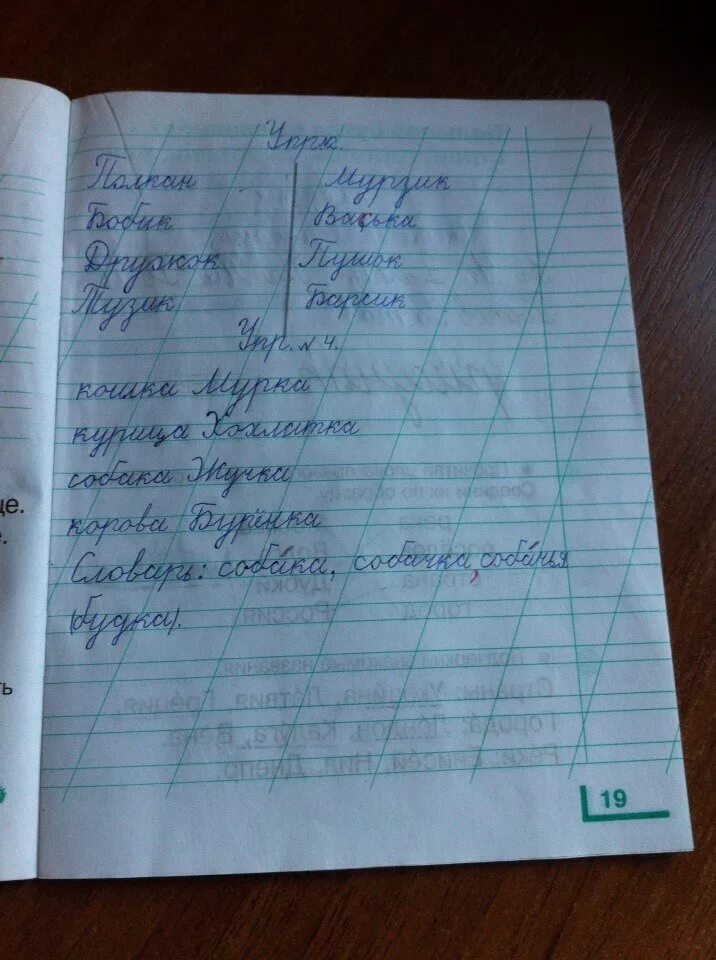 Упр.№2.
Полкан Мурзик
Бобик Васька
Дружок Пушок
Тузик Барсик
Упр. №4.
кошка Мурка
курица Хохлатка
собака Жучка
корова Бурёнка
Словарь: соба́ка, собачка, соба́чья
(будка).
19